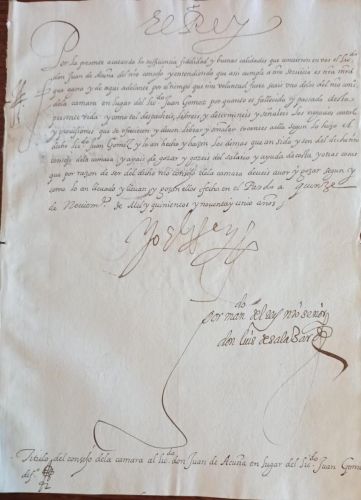 El Rey
Por la presente acatando la suficiencia, fidelidad y buenas calidades que concurren en vos el licdo
don Juan de Acuña del nro consejo y entendiendo que assi cumple a nro servicio es nra mrd
que agora y de aqui adelante por el tiempo que nra voluntad fuere seais vno delos del nro consejo
dela camara en lugar del licdo Juan Gomez por quanto es fallecido y passado desta
presente vida y como tal despacheis, libreis y determineis y señaleis los negocios
y prouisiones que se ofrecieren y deuan librar y señalar segun lo hazia el
dicho licdo Juan Gomez, y lo an hecho y hazen los demas que an sido y son del dicho nro
consejo dela camara y ayais de gozar y gozeis del salario y ayuda de costa y otras cosas
que por razon de ser del dicho nro consejo dela camara deueis auer y gozar segun y
como lo an lleuado y lleuan y gozan ellos fecha en el Pardo a quinze
de Nouiembre de Mill y quinientos y nouenta y vn años
Yo el Rey
por mando del rey nro señor
don luis de salazar
Titulo del consejo dela camara al licdo don Juan de Acuña en lugar del licdo Juan Gomez